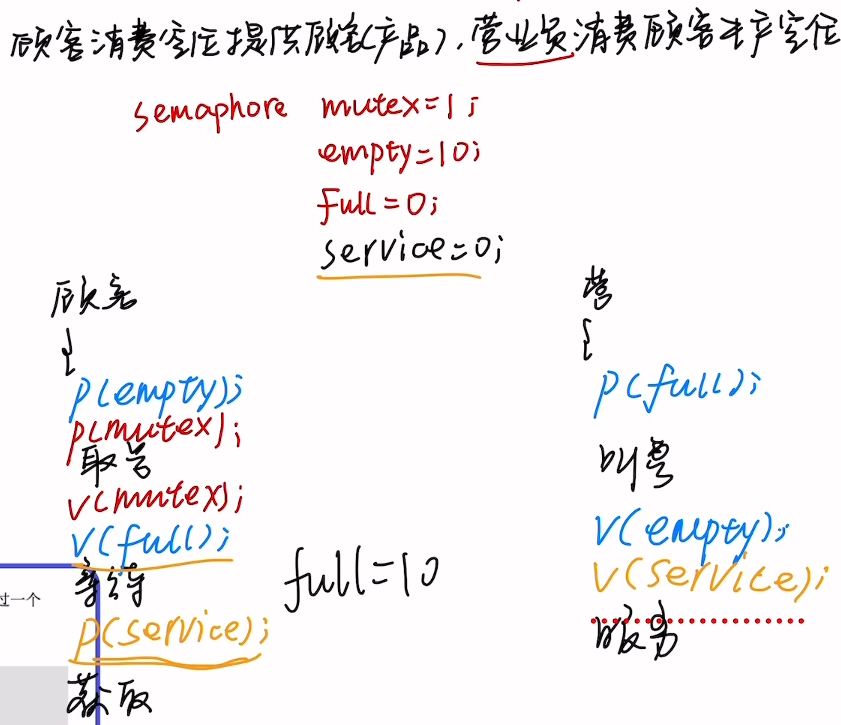 顾客消费空位提供顾客(产品),营业员消费顾客生产空位
semaphore mutex=1;
empty=10;
full=0;
service=0;
顾客
{
p(empty);
p(mutex);
取号
v(mutex);
v(full);
等待
p(service);
获取
过一个
full=10
营
{
p(full);
叫号
v(empty);
v(service);
服务